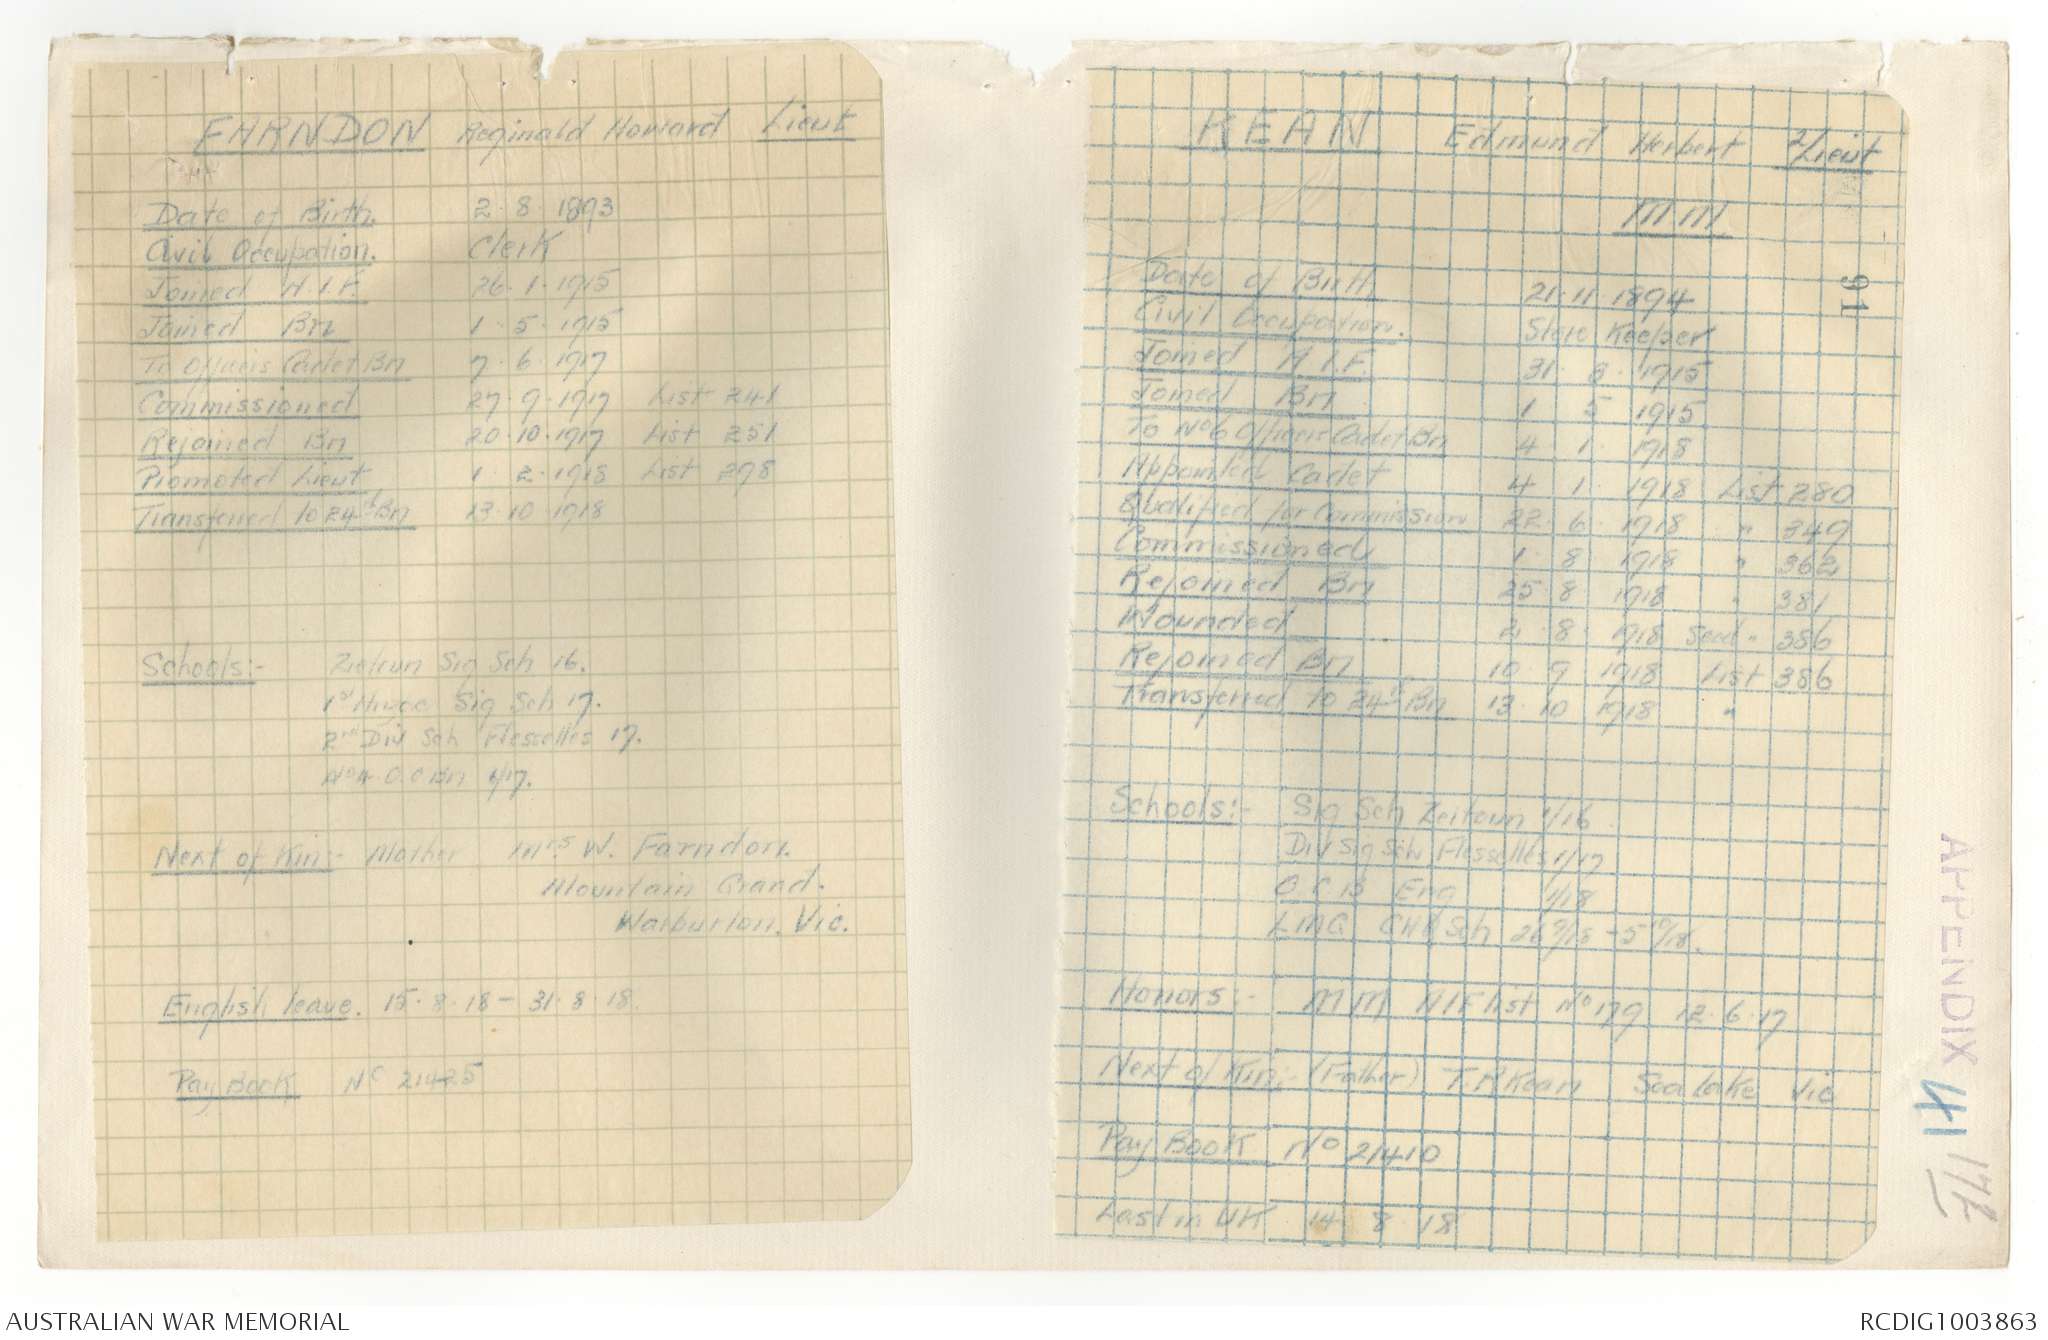 FARNDON Reginald Howard Lieut
Date of Birth. 2.8.1893
Civil Occupation. Clerk
Joined A.I.F. 26.1.1915
Joined Bn 1.5.1915
To Officers Cadet Bn 7.6.1917
Commissioned 27.9.1917 List 241
Rejoined Bn 20.10.1917 List 251
Promoted Lieut 1.2.1918 List 298
Transferred to 24th Bn 13.10.1918
Schools:- Zietoun Sig Sch 16.
1st Anzac Sig Sch 17.
2nd Div Sch Flesselles 17.
No 4. O.C Bn 6/17.
Next of Kin:- Mother Mrs W. Farndon.
Mountain Grand.
Warburton. Vic.
English leave. 15.8.18 - 31.8.18.
Pay Book No 21425
KEAN Edmund Herbert 2/Lieut
M.M.
Date of Birth. 21.11.1894
Civil Occupation. Store Keeper
Joined A.I.F. 31.3.1915
Joined Bn 1 5 1915
To No 6 Officers Cadet Bn 4.1.1918
Appointed Cadet 4 1.1918 List 280
Qualified for Commission 22.6.1918 " 349
Commissioned 1.8 1918 " 362
Rejoined Bn 25.8 1918 " 381
Wounded 2.8.1918 " 386
Rejoined Bn 10.9 1918 List 386
Transferred to 24th Bn 13.10 1918 "
Schools:- Sig Sch Zeitoun 4/16.
Div Sig Sch Flesselles 1/17
O.C.B Eng 1/18
LMG GHQ Sch 26 9/18 - 5 10/18.
Honors:- MM AIF list No 179 12.6.17
Next of Kin:- (Father) T.R Kean Sea Lake Vic
Pay Book No 21410
Last in UK 14.8.18
91
APPENDIX 41
17f
AUSTRALIAN WAR MEMORIAL
RCDIG1003863